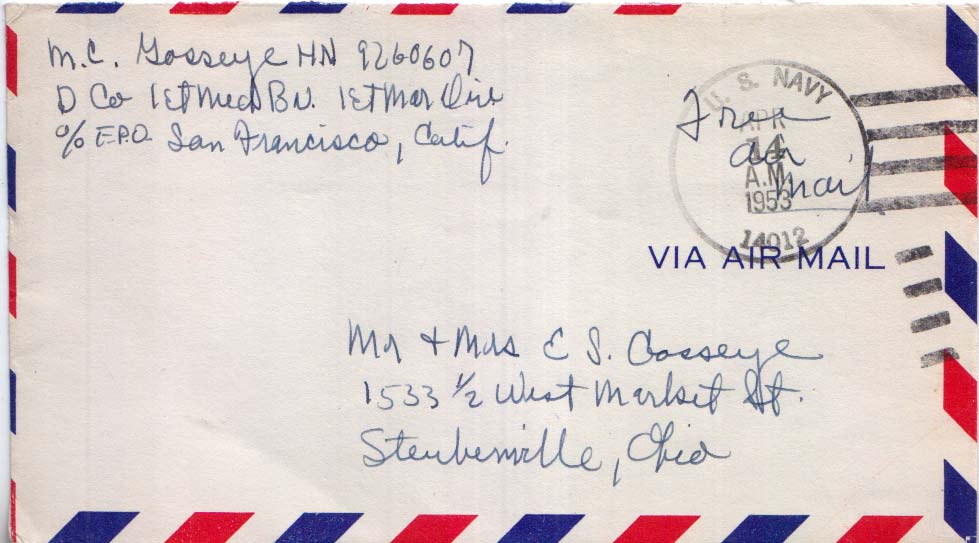 M.C. Gosseye HN 9260607
D Co 1st Med Bn. 1st Mar Div
c/o F.P.O. San Francisco, Calif.
U. S. NAVY
APR
14
A.M.
1953
14012
Free
air
mail
VIA AIR MAIL
Mr + Mrs E S. Gosseye
1533 1/2 West Market St.
Steubenville, Ohio